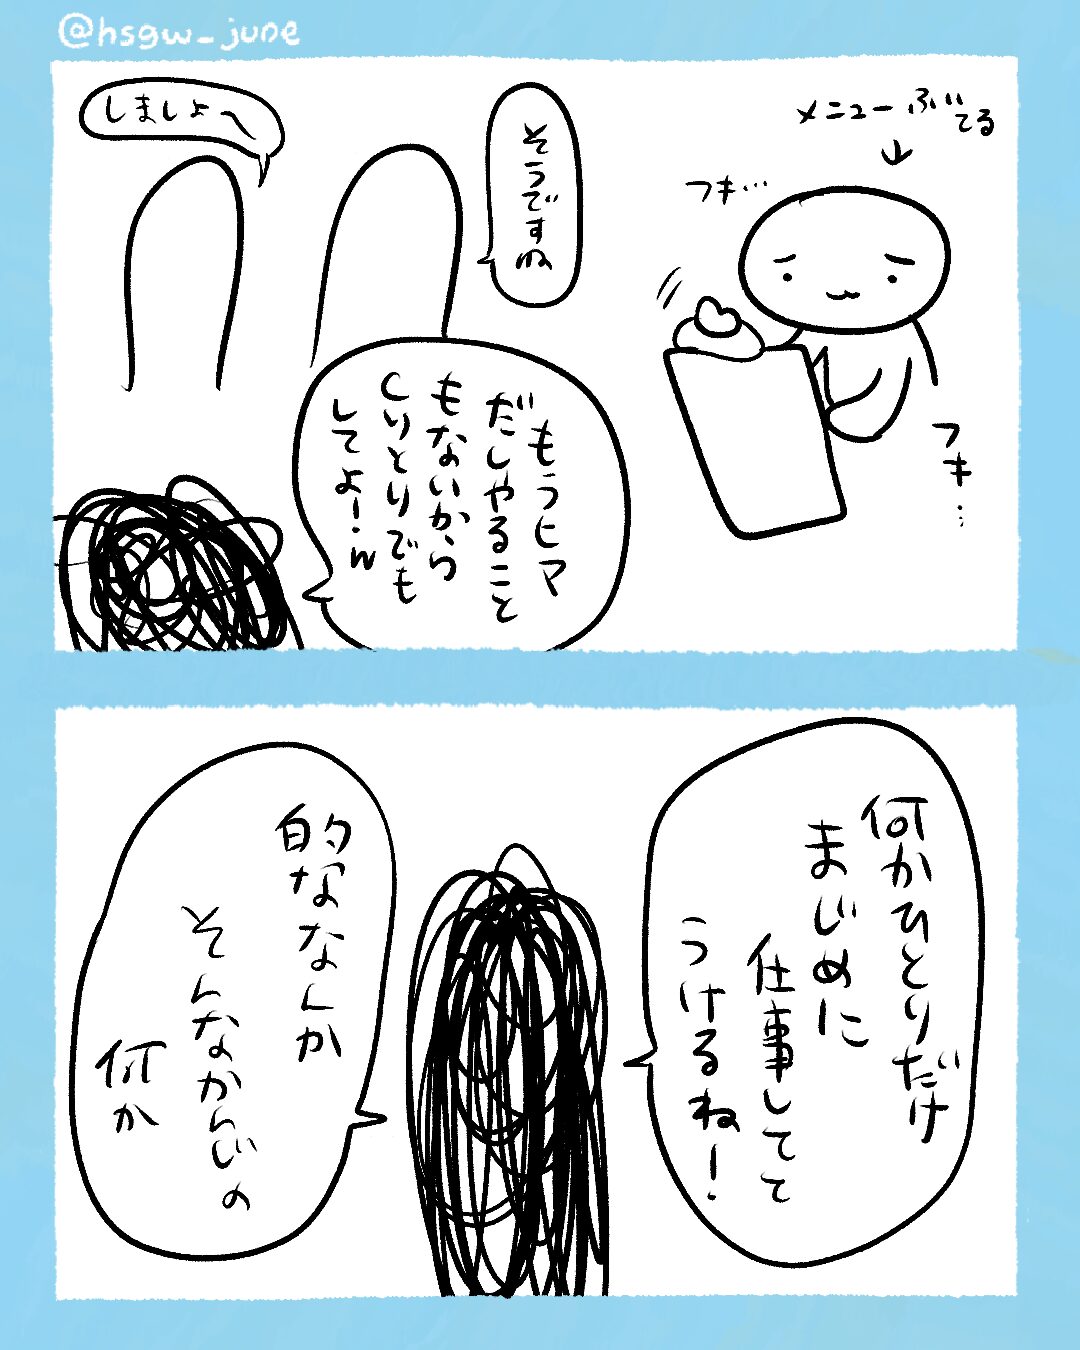 @hsgw_june
メニューふい
てる
↓
フキ…
フキ…
そうですね
しましょ〜
もうヒマ
だしやること
もないから
しりとりでも
してよ!w
何かひとりだけ
まじめに
仕事してて
うけるね!
的ななんか
そんなかんじの
何か